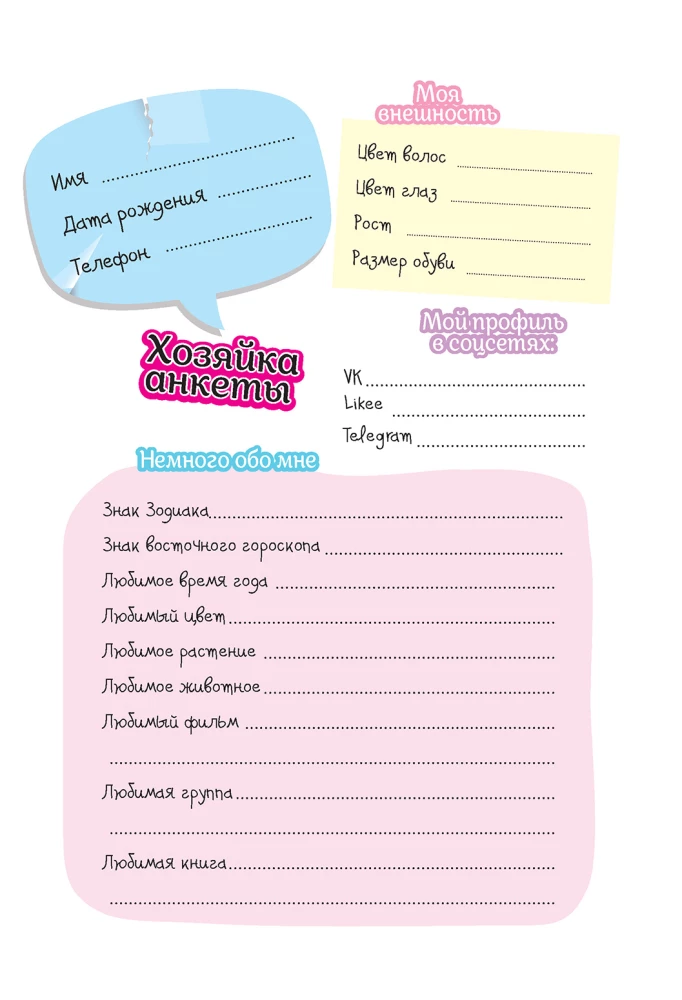 Имя
Дата рождения
Телефон
Моя
внешность
Цвет волос
Цвет глаз
Рост
Размер обуви
Хозяйка
анкеты
Мой профиль
в соцсетях:
VK
Likee
Telegram
Немного обо мне
Знак Зодиака
Знак восточного гороскопа
Любимое время года
Любимый цвет
Любимое растение
Любимое животное
Любимый фильм
Любимая группа
Любимая книга